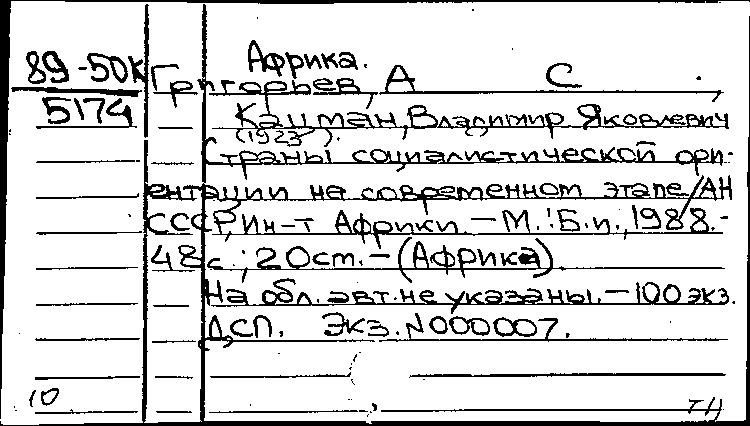 Африка.
89-50К Григорьев, А С ,
5174 Кацман, Владимир Яковлевич
(1923- ).
Страны социалистической ори-
ентации на современном этапе/АН
СССР, Ин-т Африки. - М.: Б.и., 1988. -
48 с.; 20 см. - (Африка).
На обл. авт. не указаны. - 100 экз.
ДСП. Экз. N000007.
10